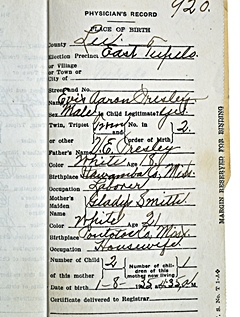 920.
PHYSICIAN'S RECORD
PLACE OF BIRTH
County Lee
Election Precinct East Tupelo
or Village
or Town or
City of
Street and No.
Name Evis Aaron Presley
Sex Male Is Child Legitimate? yes
Twin, Triplet and 2.
or other Order of birth
Father's Name V.E. Presley
Color White Age 18
Birthplace Miss.
Occupation Laborer
Mother's
Maiden Gladys Smith
Name
Color White Age 21
Birthplace Pontotoc Co Miss.
Occupation Housewife
Number of Child 2 Number of chil-
of this mother dren of this 1
mother now living
Date of birth 1-8 1935 4:35 a.m.
Certificate delivered to Registrar
MARGIN RESERVED FOR BINDING
S. No. T 1-A